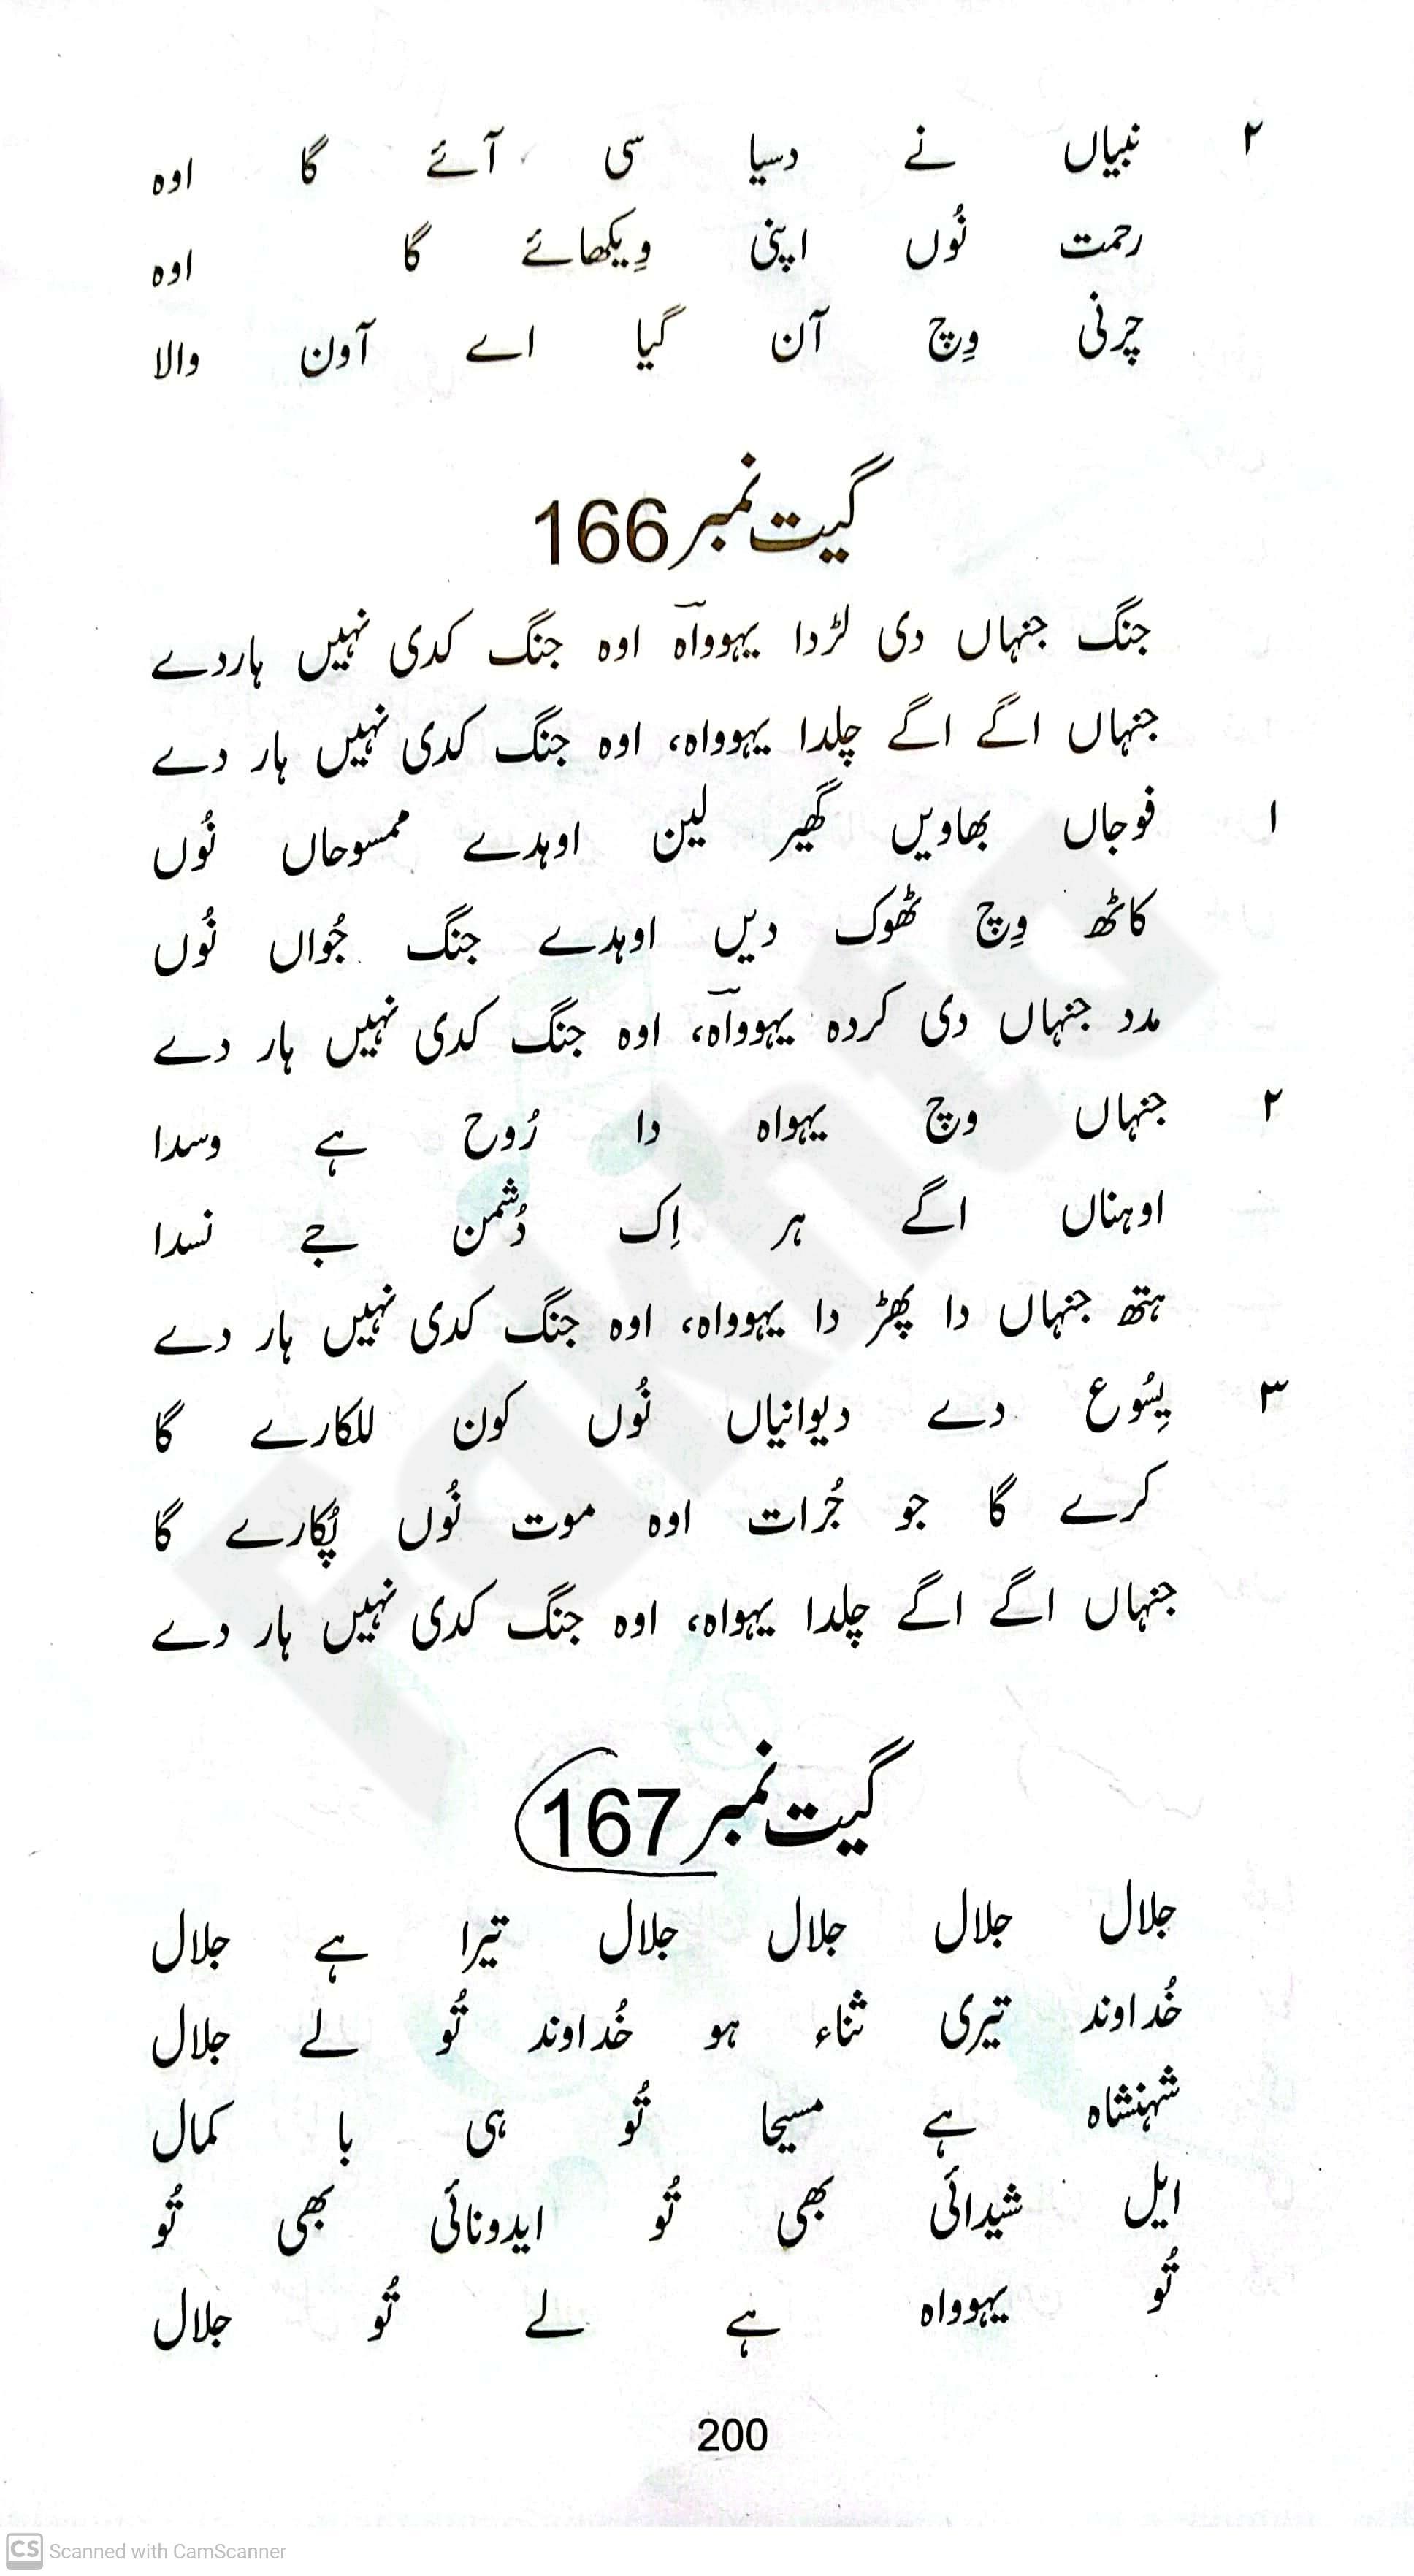 ۲ نبیاں نے دسیا سی آئے گا اوہ
رحمت نُوں اپنی وِیکھائے گا اوہ
چرنی وِچ آن گیا اے آون والا
گیت نمبر 166
جنگ جنہاں دی لڑدا یہوواہ اوہ جنگ کدی نہیں ہاردے
جنہاں اگے اگے چلدا یہوواہ، اوہ جنگ کدی نہیں ہار دے
۱ فوجاں بھاویں گھیر لین اوہدے ممسوحاں نُوں
کاٹھ وِچ ٹھوک دیں اوہدے جنگ جُواں نُوں
مدد جنہاں دی کردہ یہوواہ، اوہ جنگ کدی نہیں ہار دے
۲ جنہاں وچ یہواہ دا رُوح ہے وسدا
اوہناں اگے ہر اِک دُشمن جے نسدا
ہتھ جنہاں دا پھڑ دا یہوواہ، اوہ جنگ کدی نہیں ہار دے
۳ یِسُوع دے دیوانیاں نُوں کون للکارے گا
کرے گا جو جُرات اوہ موت نُوں پُکارے گا
جنہاں اگے اگے چلدا یہواہ، اوہ جنگ کدی نہیں ہار دے
گیت نمبر 167
جلال جلال جلال جلال تیرا ہے جلال
خُداوند تیری ثناء ہو خُداوند تُو لے جلال
شہنشاہ ہے مسیحا تُو ہی با کمال
ایل شیدائی بھی تُو ایدونائی بھی تُو
تُو یہوواہ ہے لے تُو جلال
200
Fakhta
CS Scanned with CamScanner